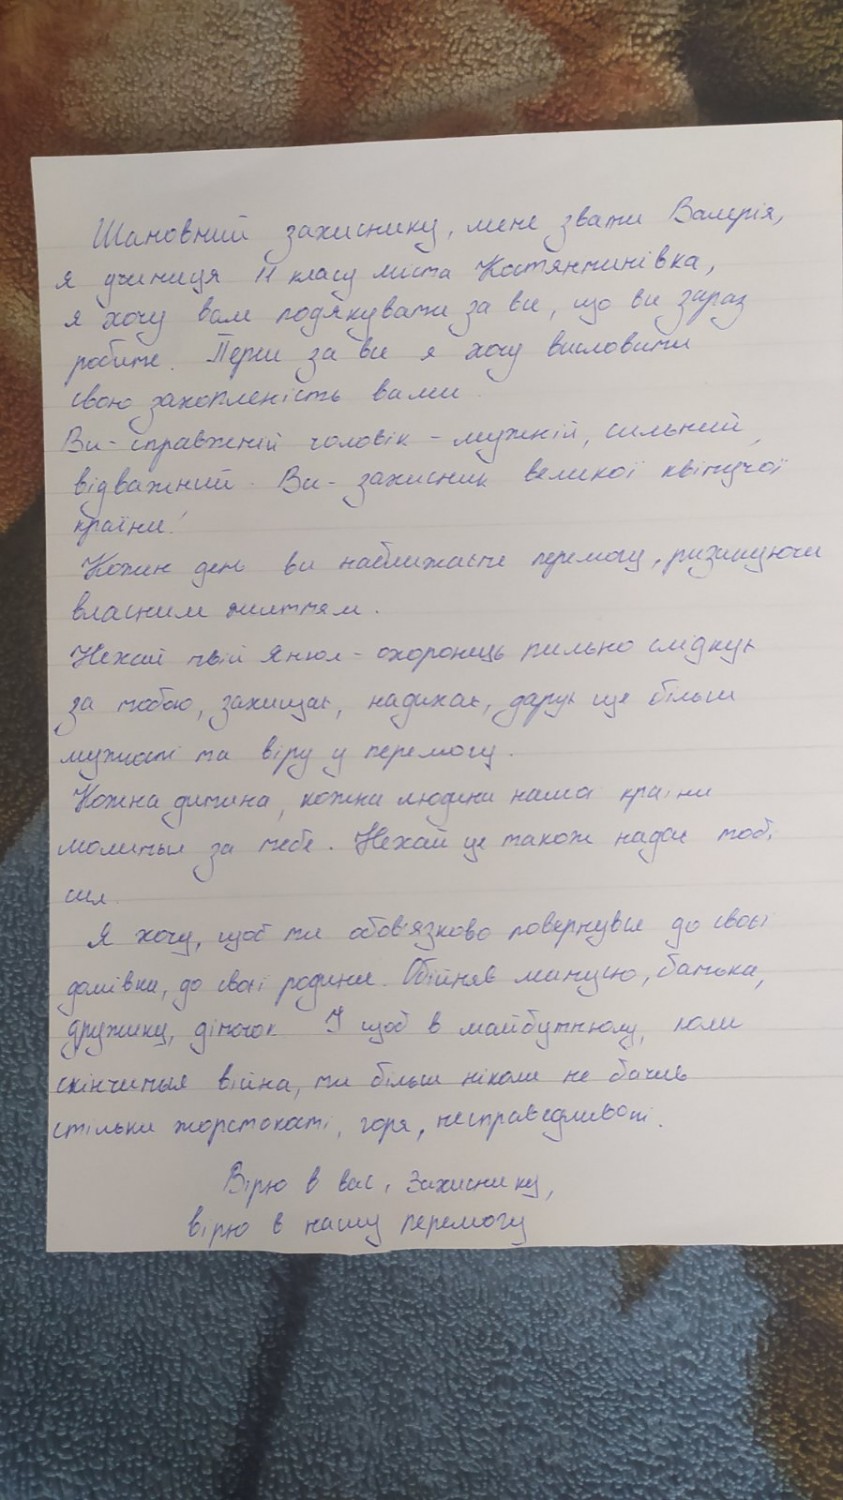 Шановний захиснику, мене звати Валерія,
я учениця 11 класу міста Костянтинівка,
я хочу вам подякувати за все, що ви зараз
робите. Перш за все я хочу висловити
свою захопленість вами.
Ви - справжній чоловік - мужній, сильний,
відважний. Ви - захисник великої квітучої
країни!
Кожен день ви наближаєте перемогу, ризикуючи
власним життям.
Нехай твій Янгол - охоронець пильно слідкує
за тобою, захищає, надихає, дарує ще більш
мужності та віру у перемогу.
Кожна дитина, кожна людина нашої країни
молиться за тебе. Нехай це також надає тобі
сил.
Я хочу, щоб ти обов'язково повернувся до своєї
домівки, до своєї родини. Обійняв матусю, батька,
дружину, діточок. І щоб в майбутньому, коли
скінчиться війна, ти більш ніколи не бачив
стільки жорстокості, горя, несправедливості.
Вірю в вас, Захиснику,
вірю в нашу перемогу